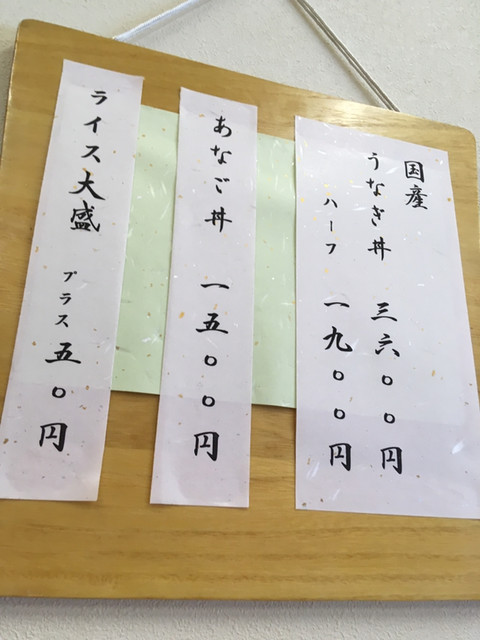 国産
うなぎ丼 三六〇〇円
ハーフ 一九〇〇円
あなご丼 一五〇〇円
ライス大盛 プラス五〇円